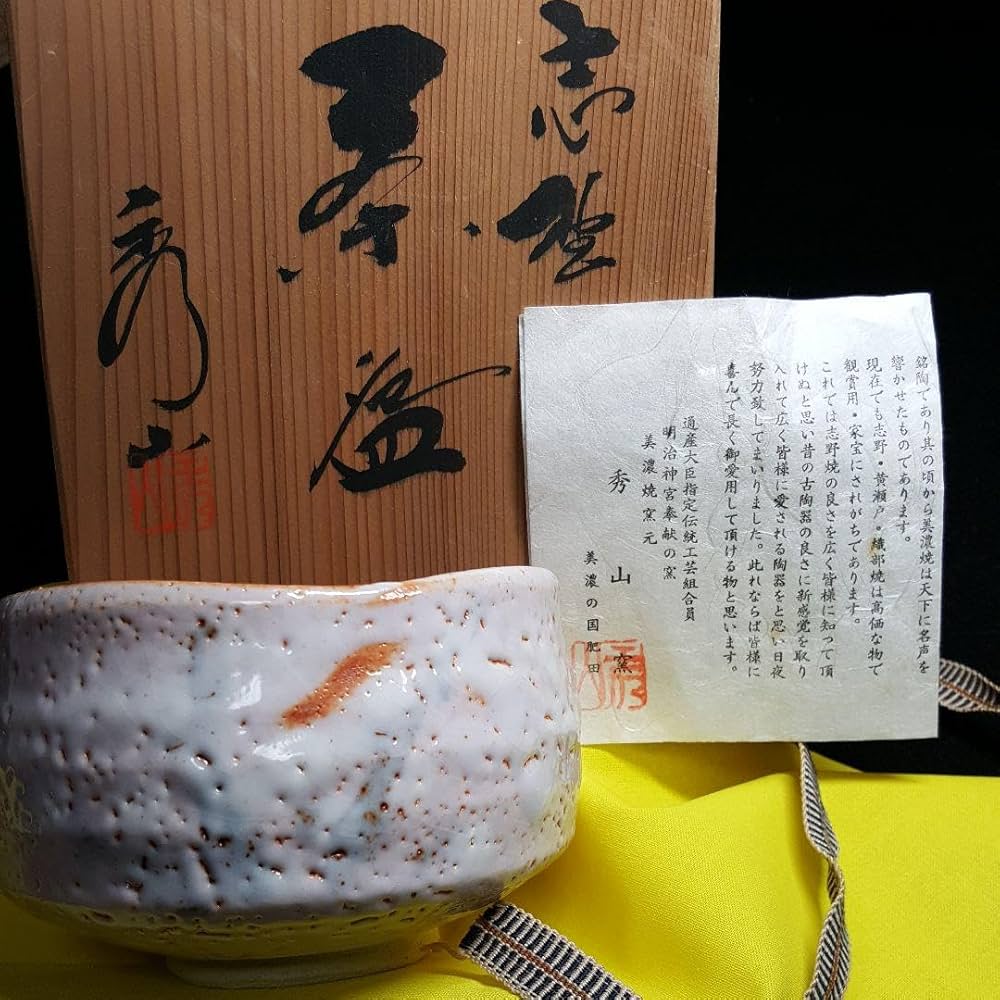 志野
茶盌
秀山
銘陶であり其の頃から美濃焼は天下に名声を
響かせたものであります。
現在でも志野・黄瀬戸。織部焼は高価な物で
観賞用・家宝にされがちであります。
これでは志野焼の良さを広く皆様に知って頂
けぬと思い昔の古陶器の良さに新感覚を取り
入れて広く皆様に愛される陶器をと思い日夜
努力致してまいりました。此れならば皆様に
喜んで長く御愛用して頂ける物と思います。
通産大臣指定伝統工芸組合員
明治神宮奉献の窯
美濃焼窯元
秀山窯
美濃の国肥田